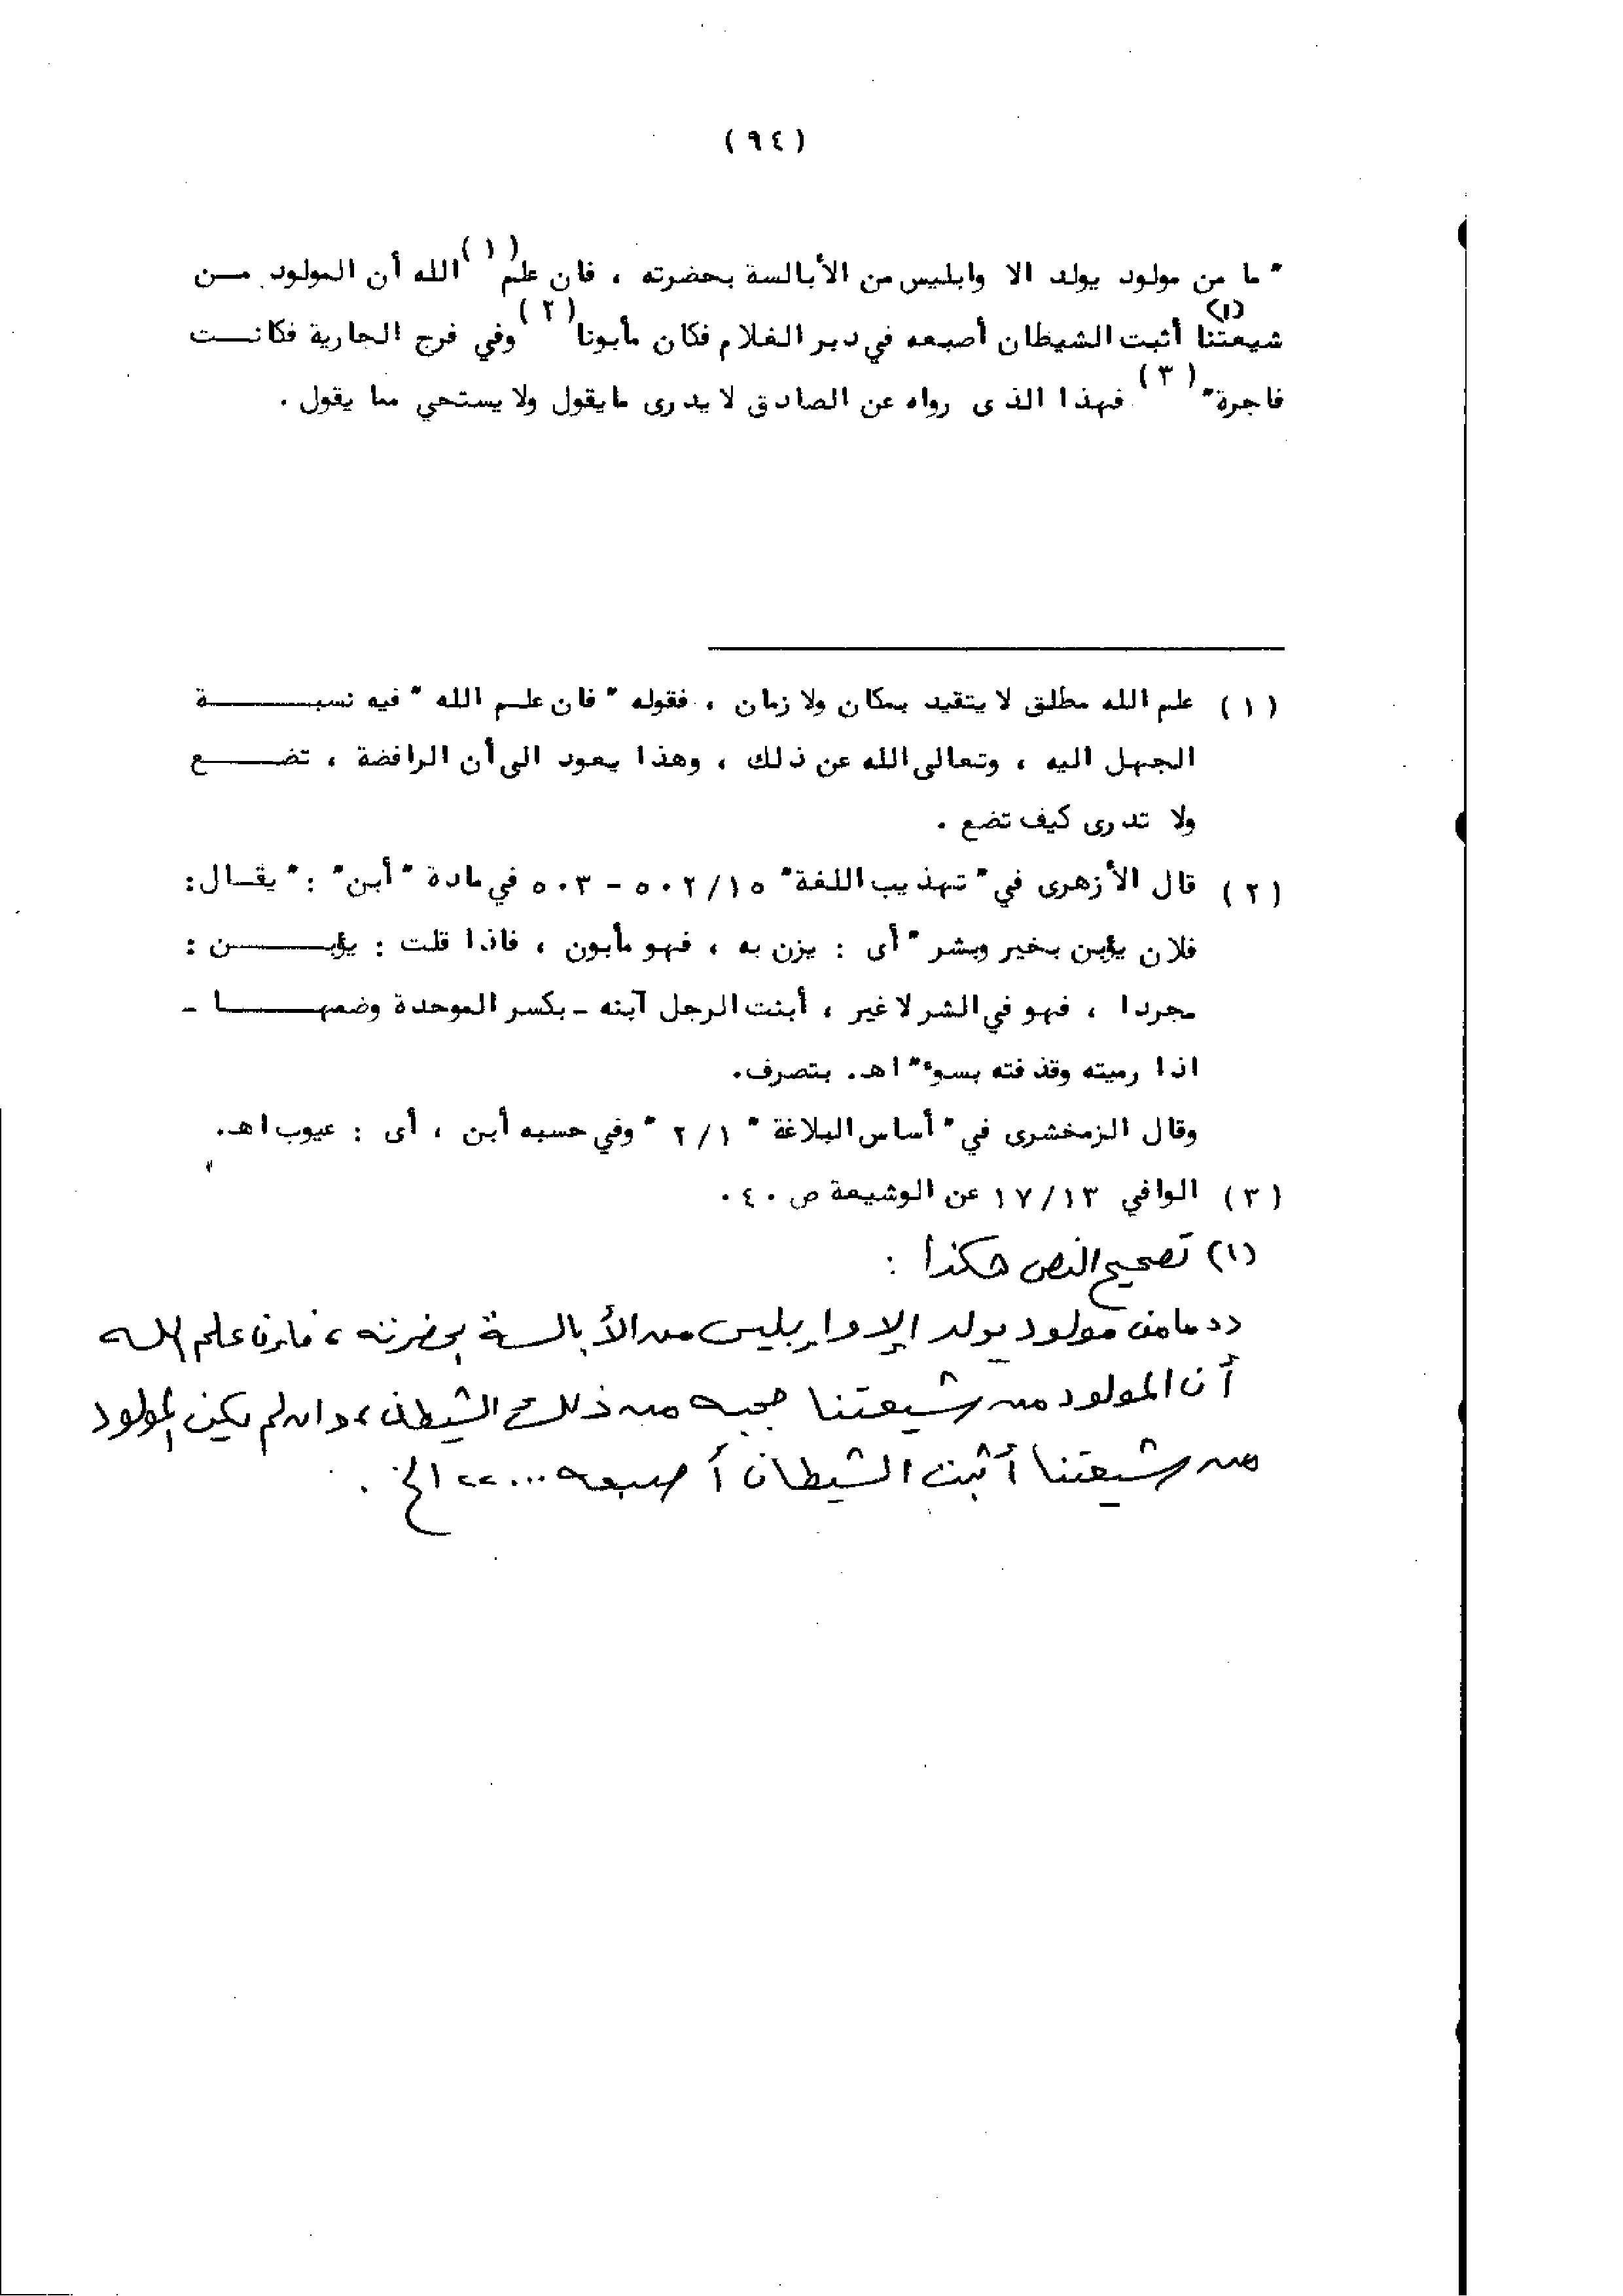 (٩٤)
" ما من مولود يولد الا وابليس من الأبالسة بحضرته ، فان علم (١) الله أن المولود من
شيعتنا (١) أثبت الشيطان أصبعه في دبر الغلام فكان مأبونا (٢) وفي فرج الجارية فكانت
فاجرة" (٣) فهذا الذى رواه عن الصادق لا يدرى مايقول ولا يستحي مما يقول .
(١) علم الله مطلق لا يتقيد بمكان ولا زمان ، فقوله " فان علم الله " فيه نسبة
الجهل اليه ، وتعالى الله عن ذلك ، وهذا يعود الى أن الرافضة ، تضع
ولا تدرى كيف تضع .
(٢) قال الأزهرى في " تهذيب اللغة" ٥٠٢/١٥ - ٥٠٣ في مادة "أبن" : " يقال :
فلان يؤبن بخير وبشر " أى : يزن به ، فهو مأبون ، فاذا قلت : يؤبن :
مجردا ، فهو في الشر لا غير ، أبنت الرجل آبنه - بكسر الموحدة وضمها -
اذا رميته وقذفته بسوء" اهـ. بتصرف.
وقال الزمخشرى في " أساس البلاغة " ٢/١ " وفي حسبه أبن ، أى : عيوب اهـ.
(٣) الوافي ١٧/١٣ عن الوشيعة ص ٤٠.
(١) تصحيح النص هكذا :
" ما من مولود يولد إلا وإبليس من الأبالسة بحضرته ، فإن علم الله
أن المولود من شيعتنا حجبه من ذلك الشيطان ، وان لم يكن المولود
من شيعتنا أثبت الشيطان أصبعه ... " الخ .